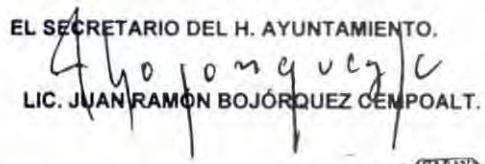 EL SECRETARIO DEL H. AYUNTAMIENTO.
LIC. JUAN RAMÓN BOJÓRQUEZ CEMPOALT.